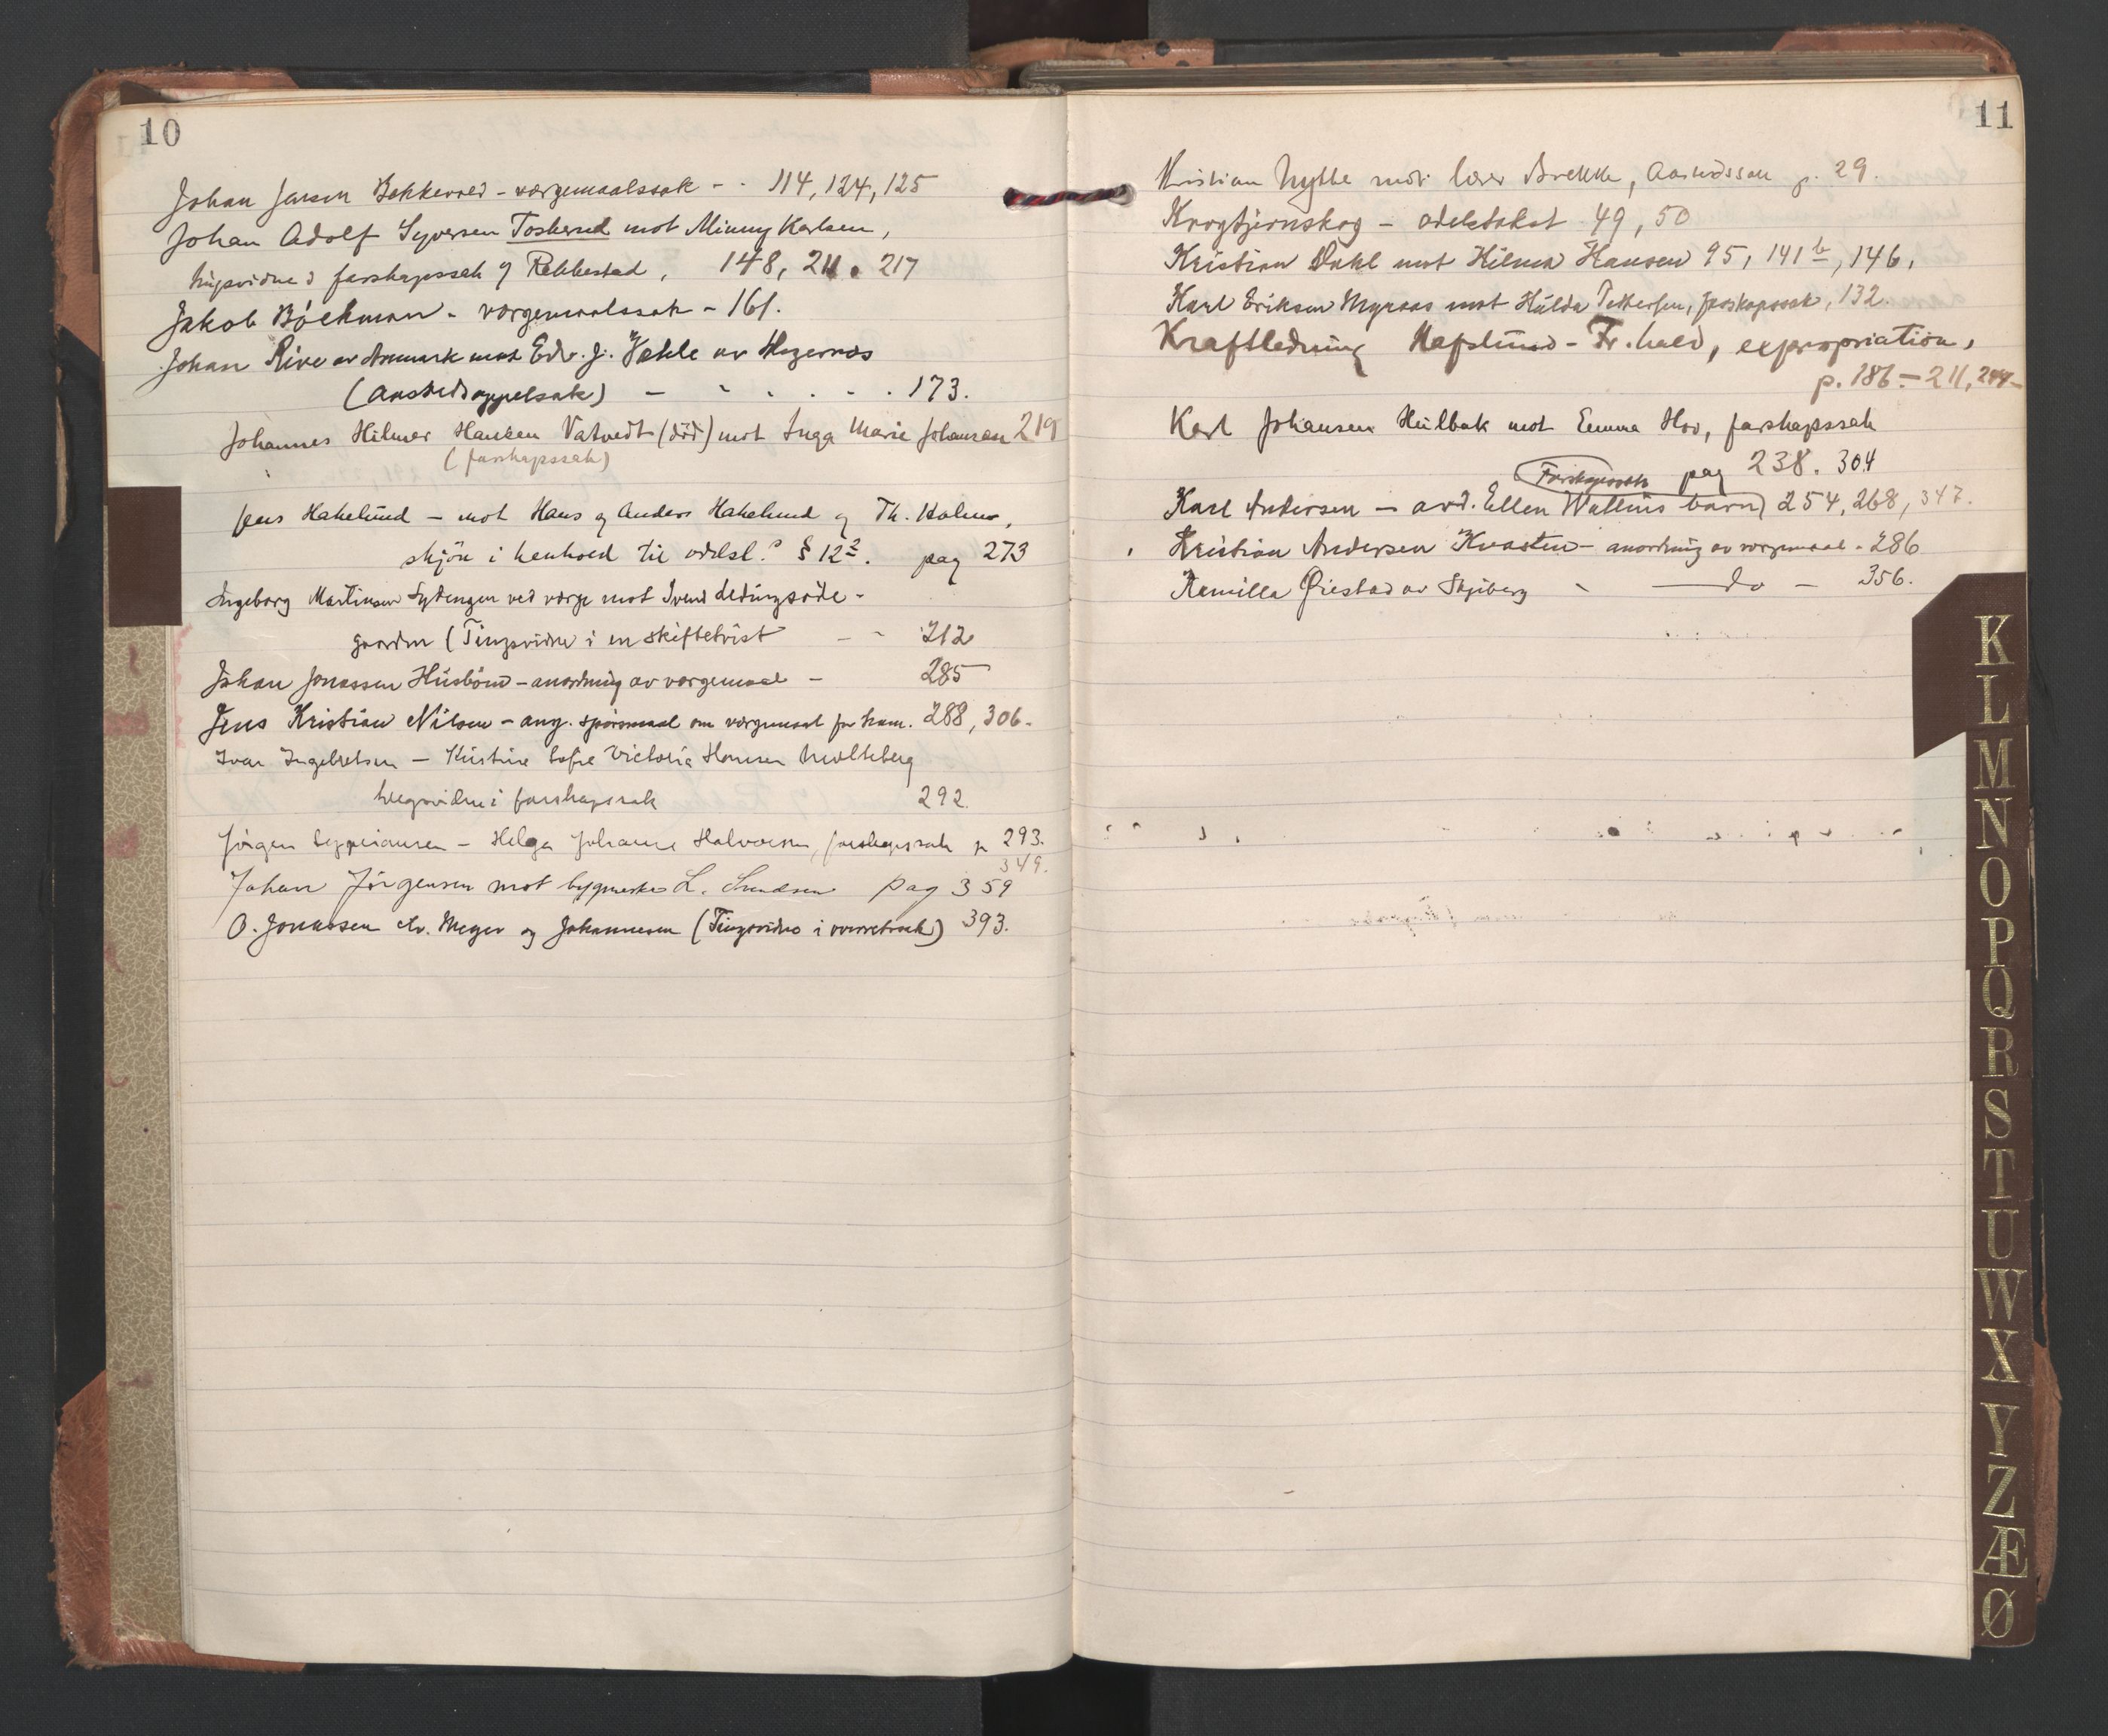 10
Johan Jensen Bakkevold - værgemaalssak - - 114, 124, 125
Johan Adolf Syversen Toskerud mot Minny Karlsen,
tingsvidne i farskapssak f Rakkestad, 148, 211. 217
Jakob Böckman - værgemaalssak - 161.
Johan Rive av Aremark mot Edv. J. Vehle av Hogernæs
(Aastedsappelsak) - - . . . . 173.
Johannes Hilmer Hansen Vatvedt (död) mot Inga Marie Johansen 219
(farskapssak)
Jens Hakelund - mot Hans og Anders Hakelund og Th. Holm,
skjön i henhold til odelsl.s § 12 2. pag 273
Ingeborg Martinsen ved værge mot Svend
gaarden (Tingsvidne i en skiftetvist - - 212
Johan Jonassen Husbönd - anordning av vergemaal - 285
Jens Kristian Nilsen - ang. spörsmaal om værgemaal for ham. 288, 306-
Ivar Ingebretsen - Kristine Sofie Victoria Hansen Molteberg
tingsvidne i farskapssak 292.
Jörgen Syperiansen - Helga Johanne Halvorsen, farskapssak p 293.
349.
Johan Jörgensen mot bygmester L. Knudsen pag 359
O. Jonassen ctr. Meyer og Johannesen (Tingsvidne i overretssak) 393.
11
Kristian Nytte mot lærer Brekke, Aastedssak p. 29.
Krogtjernskog - odelstakst 49, 50
Kristian Dahl mot Hilma Hansen 95, 141 b, 146,
Karl Eriksen Myraas mot Hulda Pettersen, farskapssak, 132.
Kraftledning Hafslund - Fr.hald, expropriation,
p. 186 - 211, 244-
Karl Johansen Hulbak mot Emma Hov, farskapssak
pag 238. 304
Farskapssak
Karl Andersen - avd. Ellen Wallins barn) 254, 268, 347.
Kristian Andersen Kvasten - anordning av værgemaal - 286
Kamilla Ørestad av Skjeberg - do - 356.
K
L
M
N
O
P
Q
R
S
T
U
W
X
Y
Z
Æ
Ø